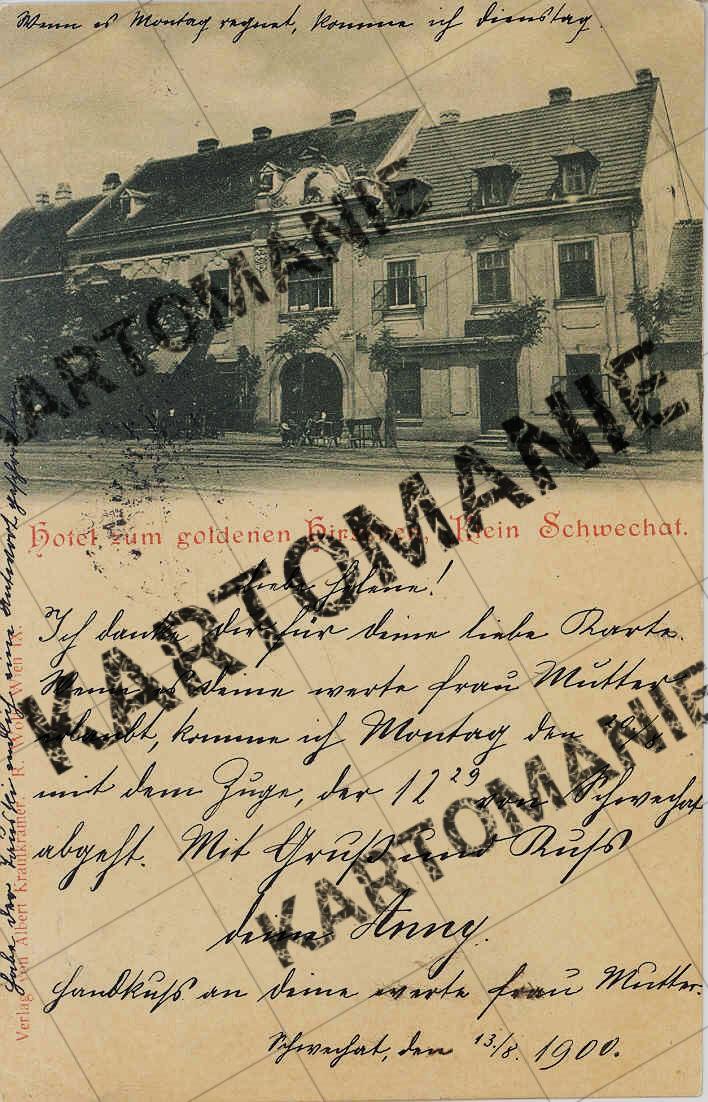 Wenn es Montag regnet, komme ich Dienstag.
Hotel zum goldenen Hirschen, Klein Schwechat.
Liebe Helene!
Ich danke dir für deine liebe Karte.
Wenn es deine werte Frau Mutter
erlaubt, komme ich Montag den
mit dem Zuge, der 12 29 von Schwechat
abgeht. Mit Gruß und Kuss
deine Anny.
Handkuss an deine werte Frau Mutter.
Schwechat, den 13./8. 1900.
Habe der endlich eine Antwort geschrieben
Verlag von Albert Krahkramer. R. Wien IX.
KARTOMANIE
KARTOMANIE
KARTOMANIE
KARTOMANIE